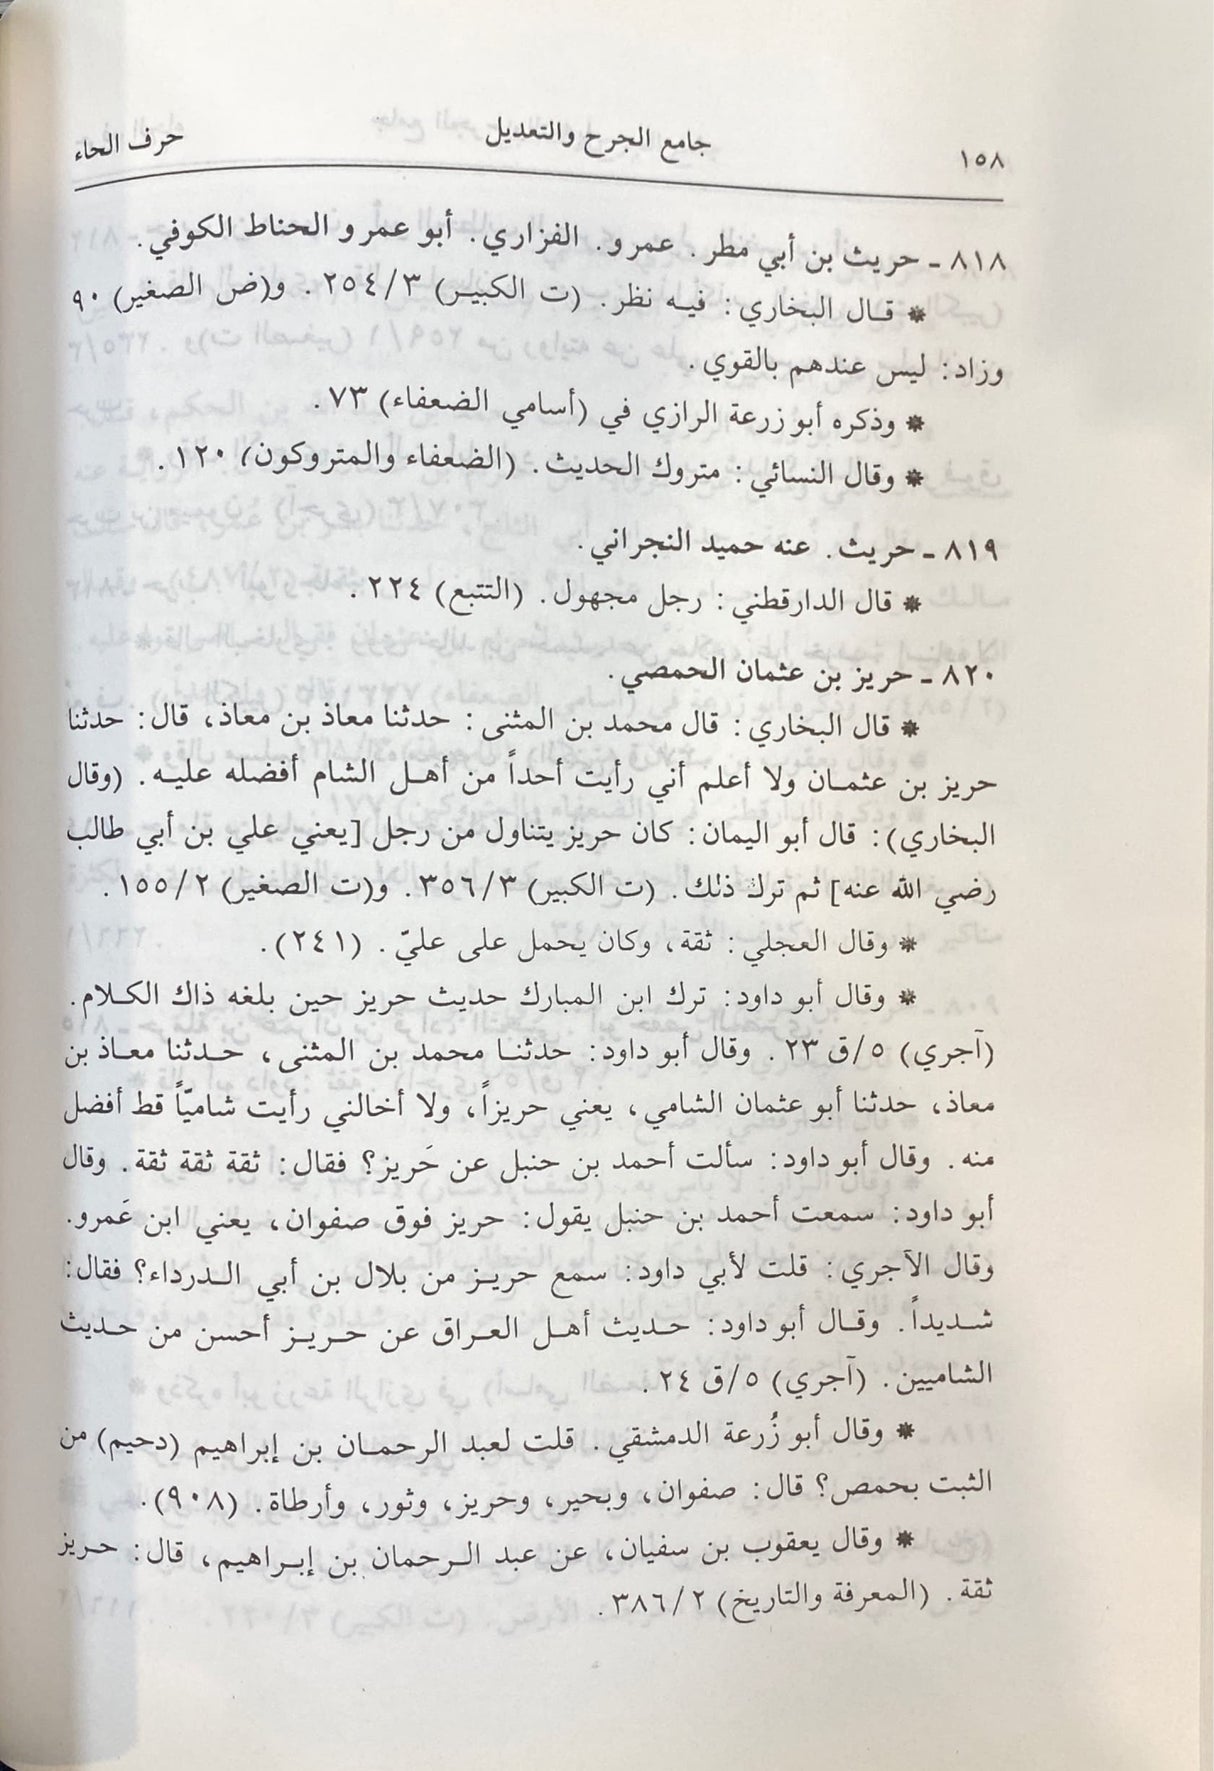 ١٥٨ جامع الجرح والتعديل حرف الحاء
٨١٨ ـ حريث بن أبي مطر. عمرو. الفزاري. أبو عمرو الحناط الكوفي.
* قال البخاري: فيه نظر. (ت الكبير) ٢٥٤/٣. و(ض الصغير) ٩٠
وزاد: ليس عندهم بالقوي.
* وذكره أبو زرعة الرازي في (أسامي الضعفاء) ٧٣.
* وقال النسائي: متروك الحديث. (الضعفاء والمتروكون) ١٢٠.
٨١٩ ـ حريث. عنه حميد النجراني.
* قال الدارقطني: رجل مجهول. (التتبع) ٢٢٤.
٨٢٠ ـ حريز بن عثمان الحمصي.
* قال البخاري: قال محمد بن المثنى: حدثنا معاذ بن معاذ، قال: حدثنا
حريز بن عثمان ولا أعلم أني رأيت أحداً من أهل الشام أفضله عليه. (وقال
البخاري): قال أبو اليمان: كان حريز يتناول من رجل [يعني علي بن أبي طالب
رضي الله عنه] ثم ترك ذلك. (ت الكبير) ٣٥٦/٣. و(ت الصغير) ١٥٥/٢.
* وقال العجلي: ثقة، وكان يحمل على عليّ. (٢٤١).
* وقال أبو داود: ترك ابن المبارك حديث حريز حين بلغه ذاك الكلام.
(آجري) ٥/ق ٢٣. وقال أبو داود: حدثنا محمد بن المثنى، حدثنا معاذ بن
معاذ، حدثنا أبو عثمان الشامي، يعني حريزاً، ولا أخالني رأيت شاميّاً قط أفضل
منه. وقال أبو داود: سألت أحمد بن حنبل عن حَريز؟ فقال: ثقة ثقة ثقة. وقال
أبو داود: سمعت أحمد بن حنبل يقول: حريز فوق صفوان، يعني ابن عَمرو.
وقال الآجري: قلت لأبي داود: سمع حريز من بلال بن أبي الدرداء؟ فقال:
شديداً. وقال أبو داود: حديث أهل العراق عن حريز أحسن من حديث
الشاميين. (آجري) ٥/ق ٢٤.
* وقال أبو زُرعة الدمشقي. قلت لعبد الرحمان بن إبراهيم (دحيم) من
الثبت بحمص؟ قال: صفوان، وبحير، وحريز، وثور، وأرطاة. (٩٠٨).
* وقال يعقوب بن سفيان، عن عبد الرحمان بن إبراهيم، قال: حريز
ثقة. (المعرفة والتاريخ) ٣٨٦/٢.